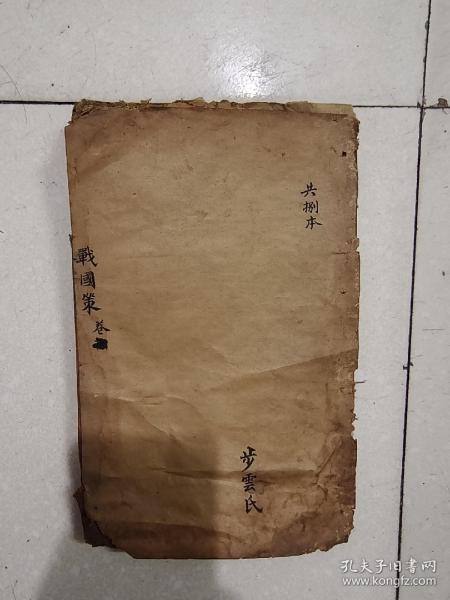 共捌本
戰國策 卷
步雲氏
孔夫子旧书网
www.kongfz.com